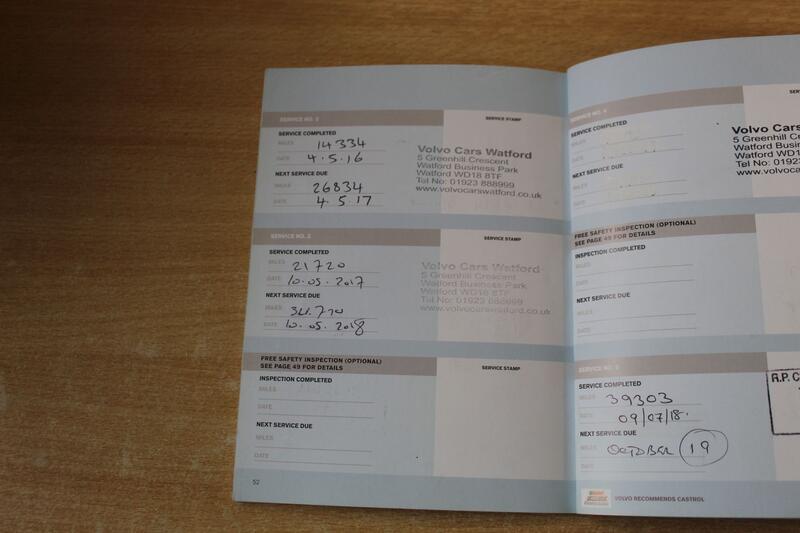 SERVICE STAMP
SERVICE COMPLETED
MILES 14334
DATE 4.5.16
NEXT SERVICE DUE
MILES 26834
DATE 4.5.17
Volvo Cars Watford
5 Greenhill Crescent
Watford Business Park
Watford WD18 8TF
Tel No: 01923 888999
www.volvocarswatford.co.uk
SERVICE NO. 2
SERVICE STAMP
SERVICE COMPLETED
MILES 21720
DATE 10.05.2017
NEXT SERVICE DUE
MILES
DATE 10.05.2018
Volvo Cars Watford
5 Greenhill Crescent
Watford Business Park
Watford WD18 8TF
Tel No: 01923 888999
www.volvocarswatford.co.uk
FREE SAFETY INSPECTION (OPTIONAL)
SEE PAGE 49 FOR DETAILS
SERVICE STAMP
INSPECTION COMPLETED
MILES
DATE
NEXT SERVICE DUE
MILES
DATE
52
SERVICE NO. 4
SERVICE COMPLETED
MILES
DATE
NEXT SERVICE DUE
MILES
DATE
Volvo Cars
5 Greenhill
Watford Busi
Watford WD1
Tel No: 0192
www.volvoca
FREE SAFETY INSPECTION (OPTIONAL)
SEE PAGE 49 FOR DETAILS
INSPECTION COMPLETED
MILES
DATE
NEXT SERVICE DUE
MILES
DATE
SERVICE COMPLETED
MILES 39303
DATE 09/07/18.
NEXT SERVICE DUE
MILES OCTOBER 19
DATE
R.P. C
VOLVO RECOMMENDS CASTROL